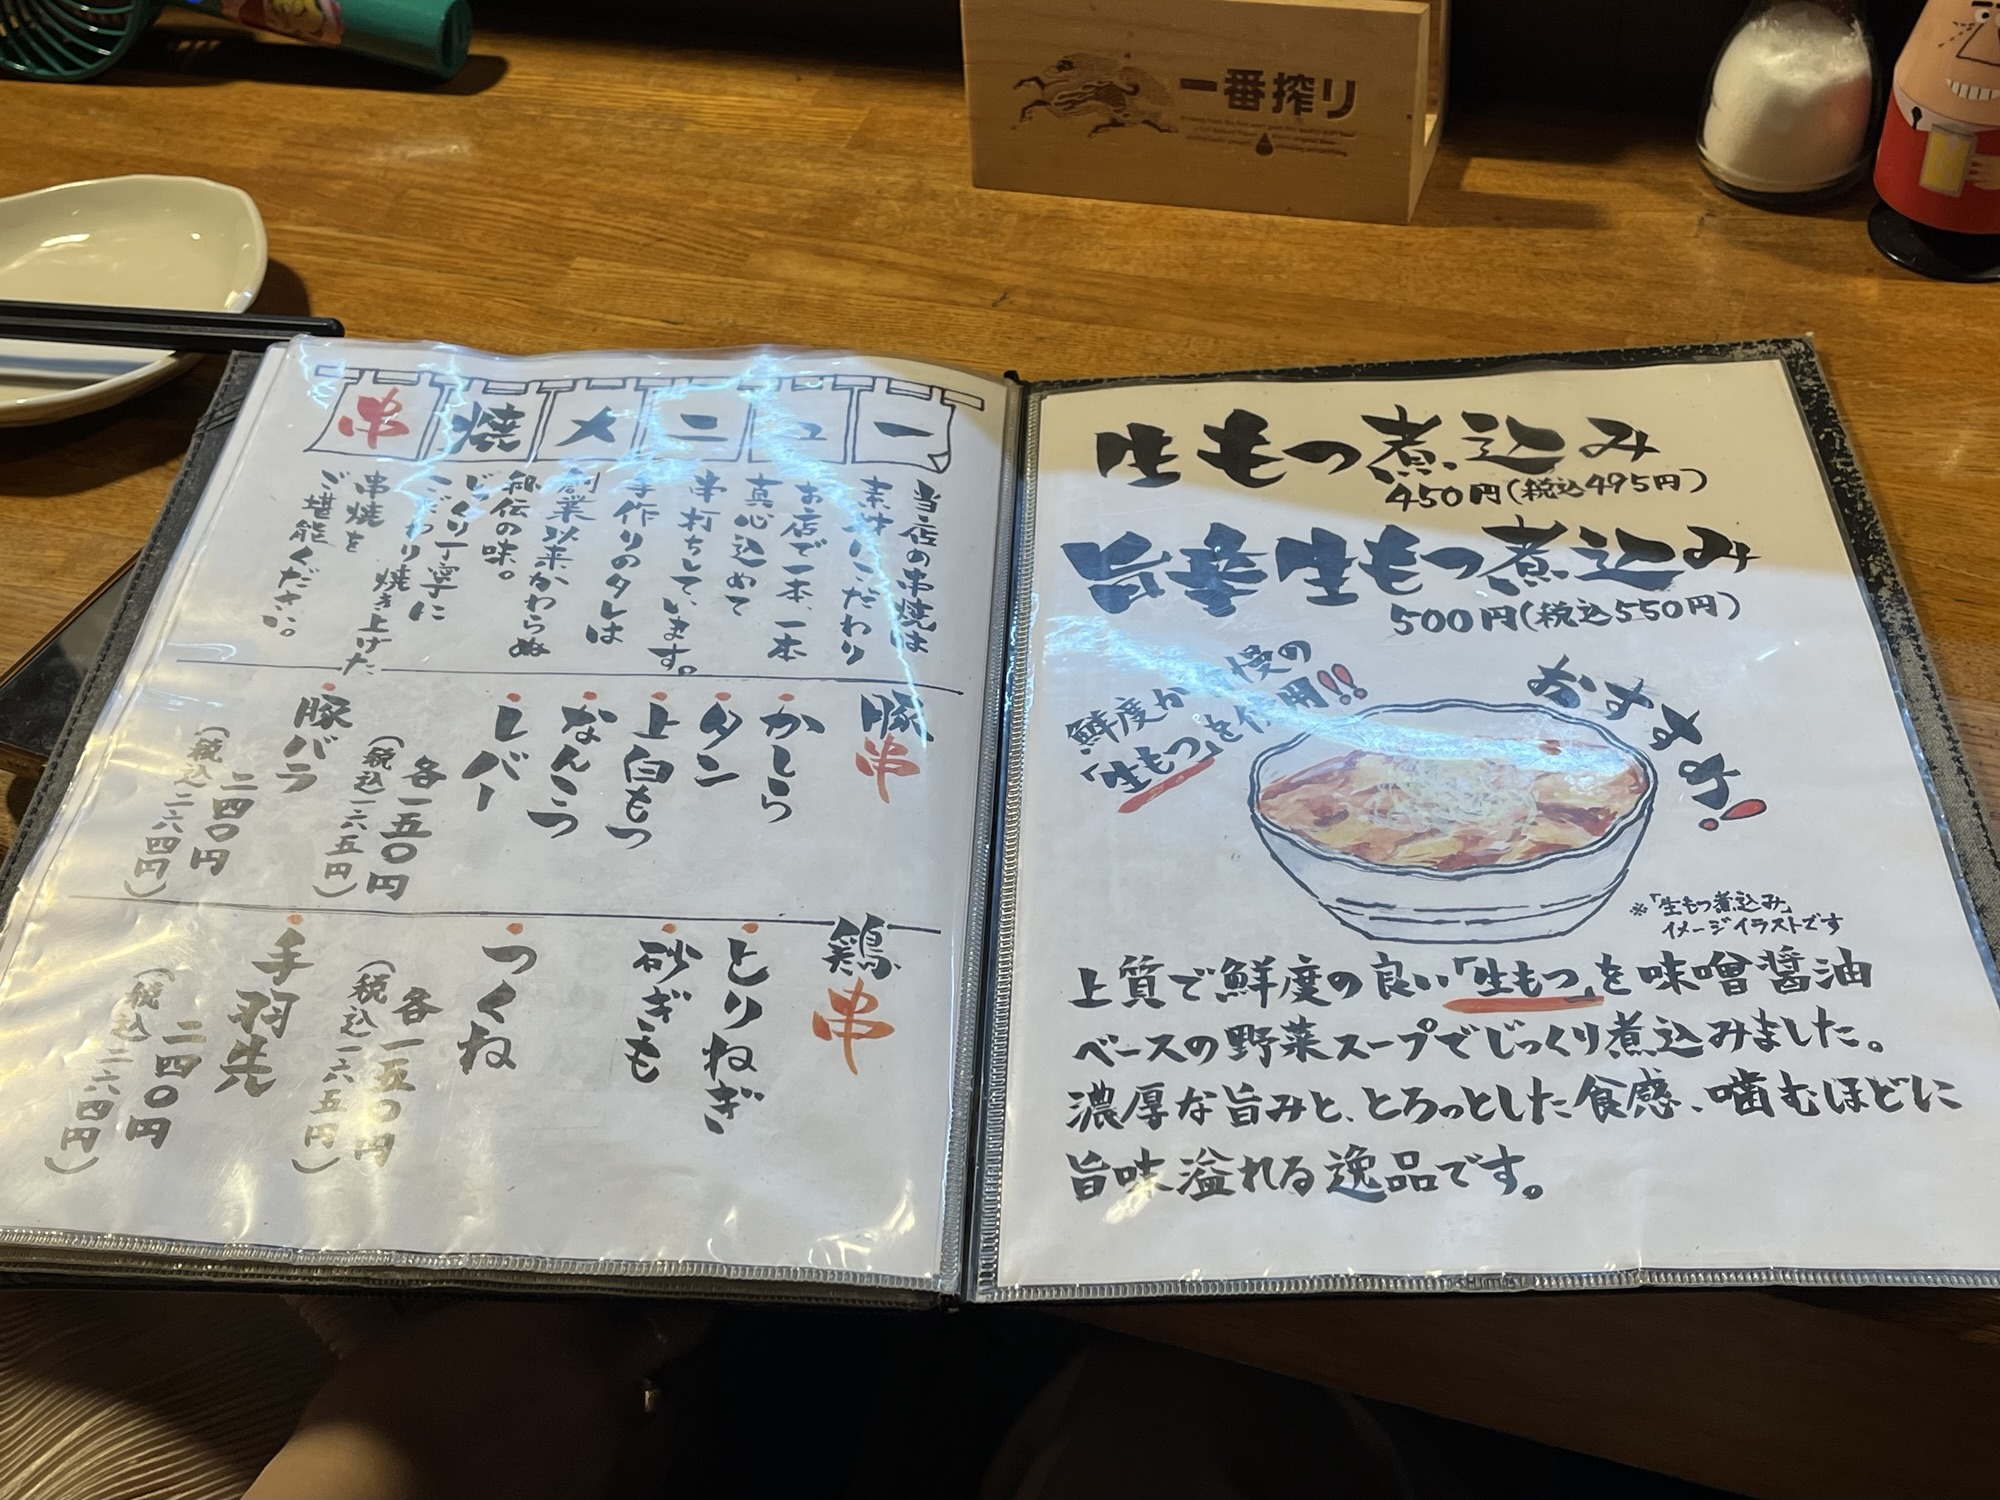 一番搾り
串焼メニュー
当店の串焼は
素材にこだわり
お店で一本、一本
真心込めて
串打ちしています。
手作りのタレは
創業以来かわらぬ
秘伝の味。
じっくり丁寧に
こだわり焼き上げた
串焼を
ご堪能ください。
豚串
かしら
タン
上白もつ
なんこつ
レバー
各一五〇円
(税込一六五円)
豚バラ
二四〇円
(税込二六四円)
鶏串
とりねぎ
砂ぎも
つくね
各一五〇円
(税込一六五円)
手羽先
二四〇円
(税込二六四円)
生もつ煮込み
450円(税込495円)
旨辛生もつ煮込み
500円(税込550円)
鮮度が 慢の
「生もつ」を使用!!
おすすめ!
※「生もつ煮込み」
イメージイラストです
上質で鮮度の良い「生もつ」を味噌醤油
ベースの野菜スープでじっくり煮込みました。
濃厚な旨みと、とろっとした食感、噛むほどに
旨味溢れる逸品です。